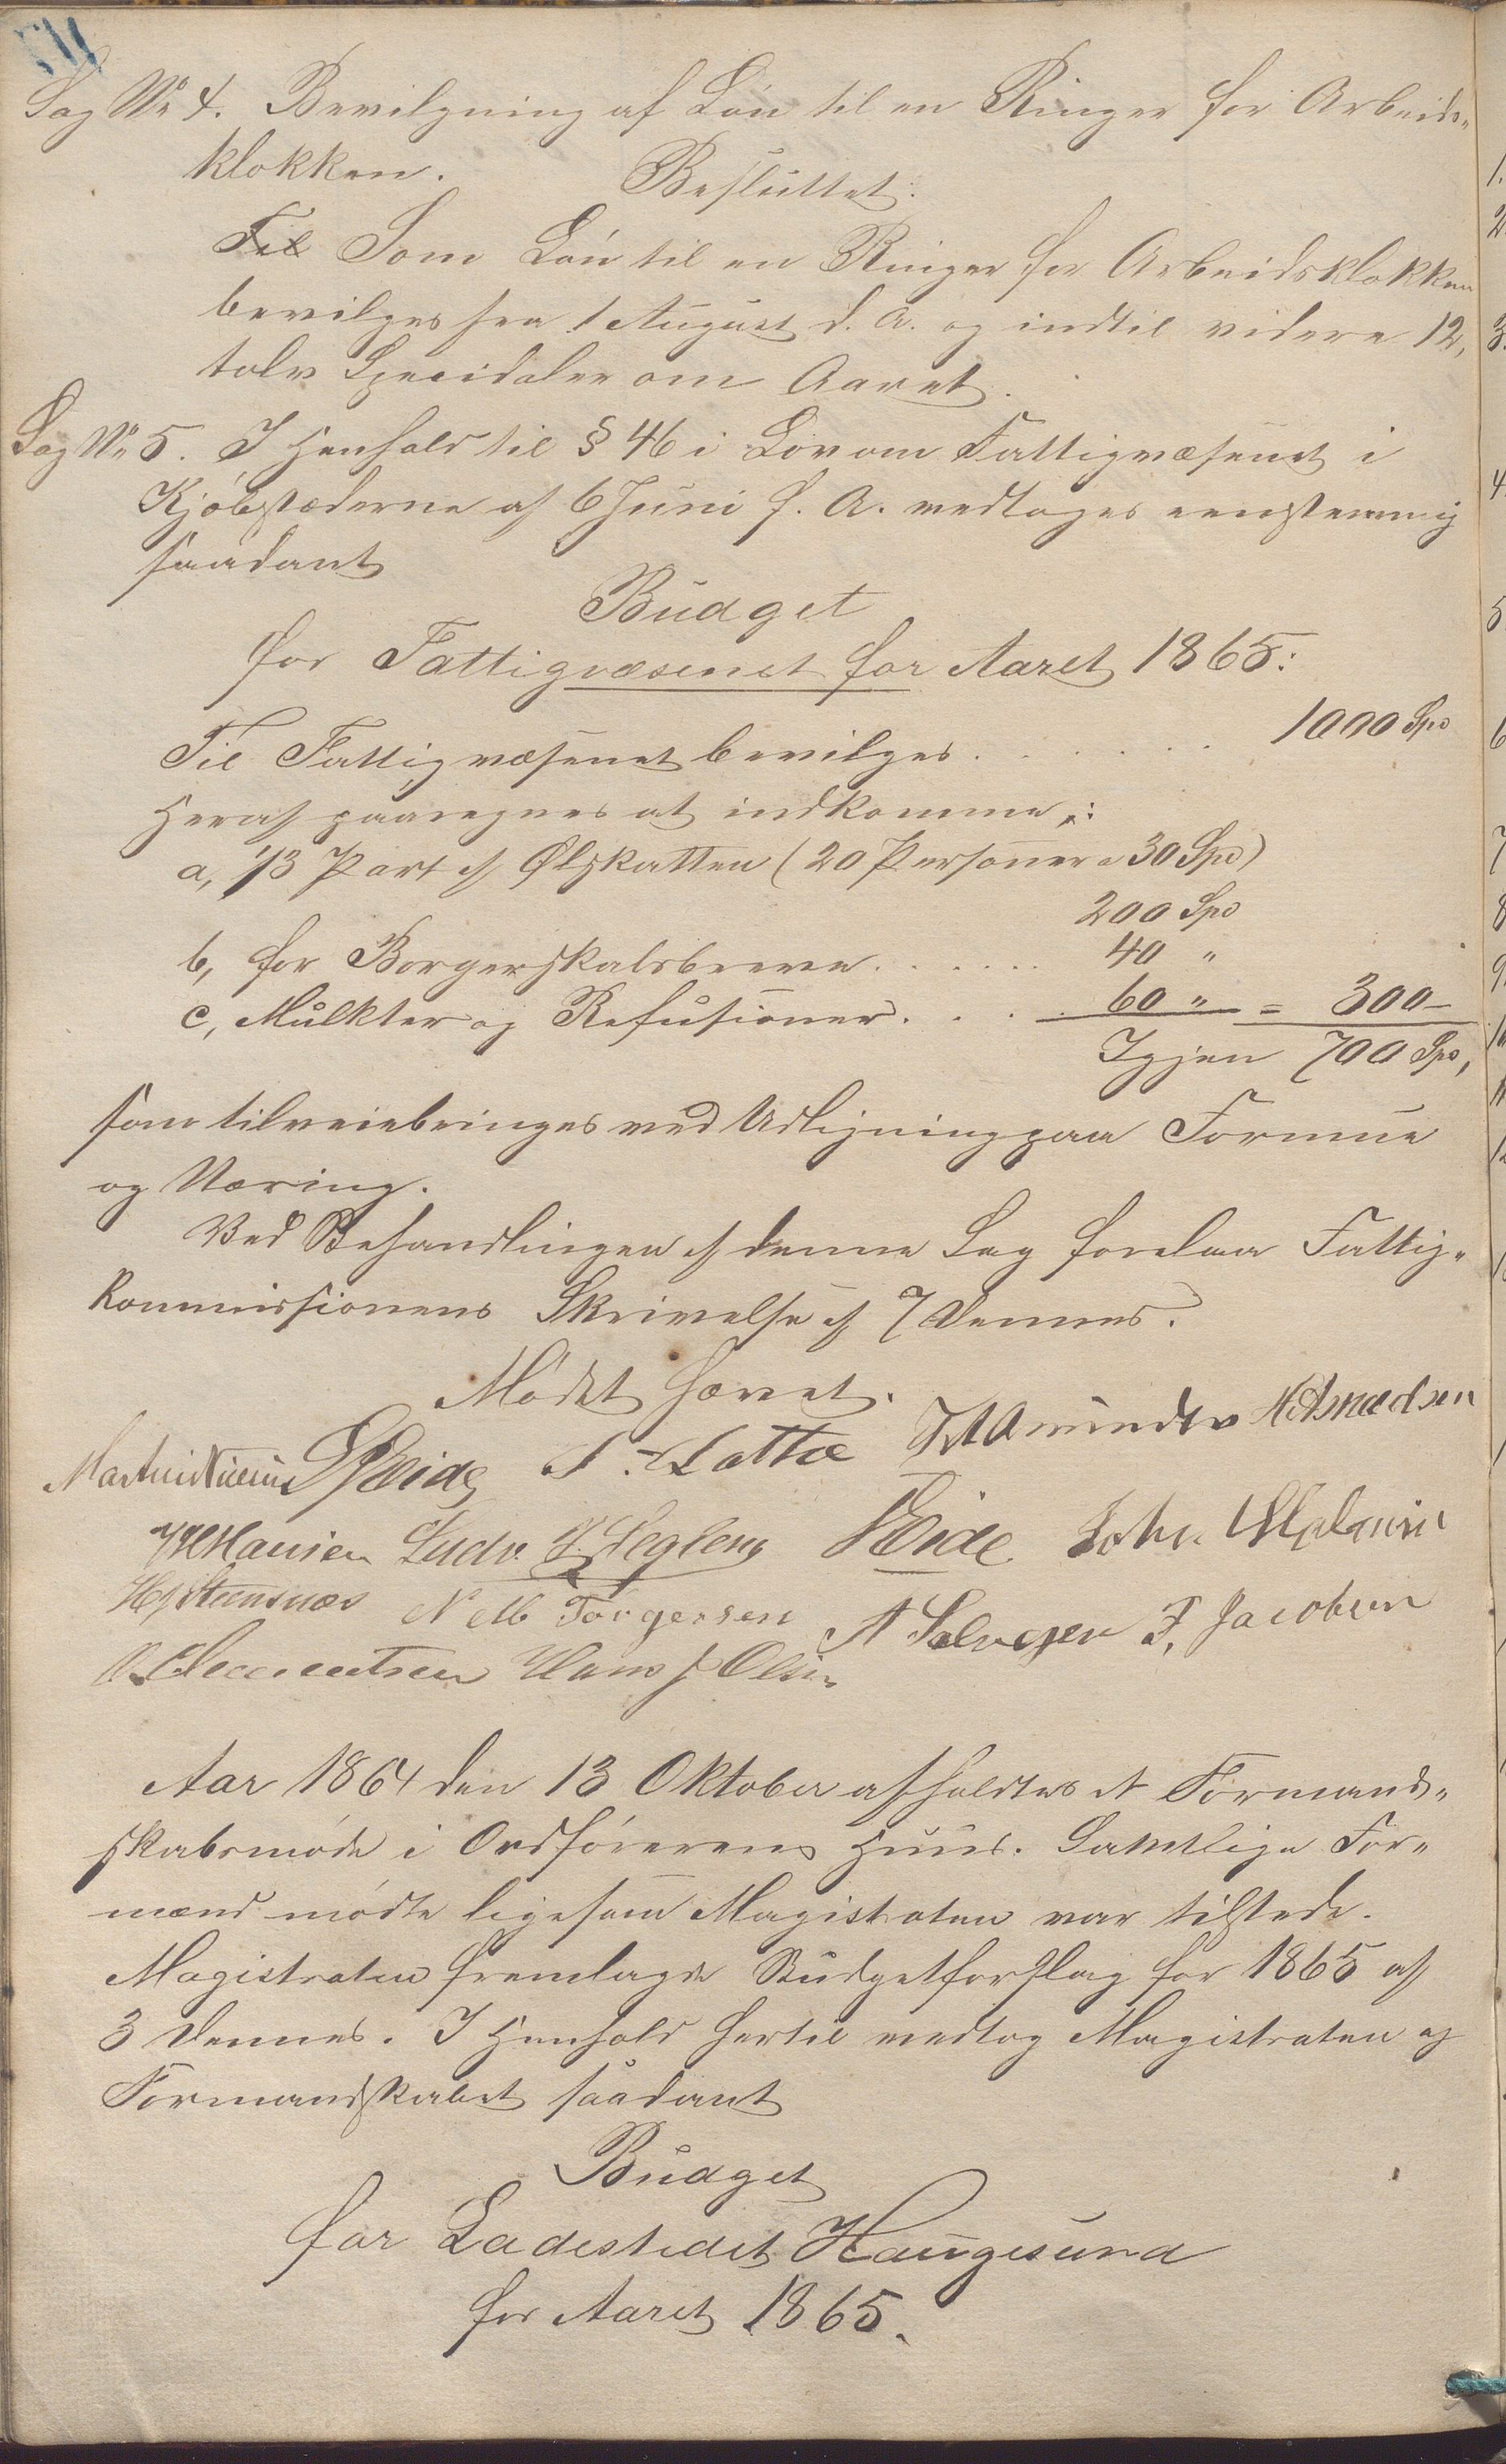 Sag No 4. Bevilgning af Løn til en Ringer for Arbeids-
klokken.
Besluttet:
Til Som Løn til en Ringer for Arbeidsklokken
bevilges fra 1 August d. A. og indtil videre 12,
tolv Specidaler om Aaret.
Sag No 5. I Henhold til § 46 i Lov om Fattigvæsenet i
Kjøbstæderne af 6 Juni f. A. vedtoges eenstemmig
saadant
Budget
for Fattigvæsenet for Aaret 1865:
Til Fattigvæsenet bevilges . . . . . . 1000 Spd
Heraf paaregnes at indkomme:
a, 1/3 Part af Ølskatten (20 Personer a 30 Spd)
200 Spd
b, for Borgerskabsbreve . . . . . . 40 "
c, Mulkter og Refusioner . . . . 60 " = 300 -
Igjen 700 Spd,
som tilveiebringes ved Udligning paa Formue
og Næring.
Ved Behandlingen af denne Sag forelaa Fattig-
kommissionens Skrivelse af 7 dennes.
Mødet hævet.
Eide Amundsen
Hansen Ludv. Eide John
H Steensnæs N M Torgersen A Solvesen F. Jacobsen
Clementsen Hans J Olsen
Aar 1864 den 13 Oktober afholdtes et Formand-
skabsmøde i Ordførerens Huus. Samtlige For-
mænd mødte ligesom Magistraten var tilstede.
Magistraten fremlagde Budgetforslag for 1865 af
3 dennes. I Henhold hertil vedtog Magistraten og
Formandskabet saadant
Budget
for Ladestedet Haugesund
for Aaret 1865.